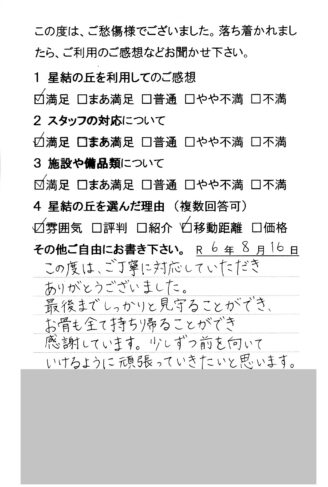 この度は、ご愁傷様でございました。落ち着かれまし
たら、ご利用のご感想などお聞かせ下さい。
1 星結の丘を利用してのご感想
☑満足 □まあ満足 □普通 □やや不満 □不満
2 スタッフの対応について
☑満足 □まあ満足 □普通 □やや不満 □不満
3 施設や備品類について
☑満足 □まあ満足 □普通 □やや不満 □不満
4 星結の丘を選んだ理由（複数回答可）
☑雰囲気 □評判 □紹介 ☑移動距離 □価格
その他ご自由にお書き下さい。 R 6 年 8 月 16 日
この度は、ご丁寧に対応していただき
ありがとうございました。
最後までしっかりと見守ることができ、
お骨も全て持ち帰ることができ
感謝しています。少しずつ前を向いて
いけるように頑張っていきたいと思います。